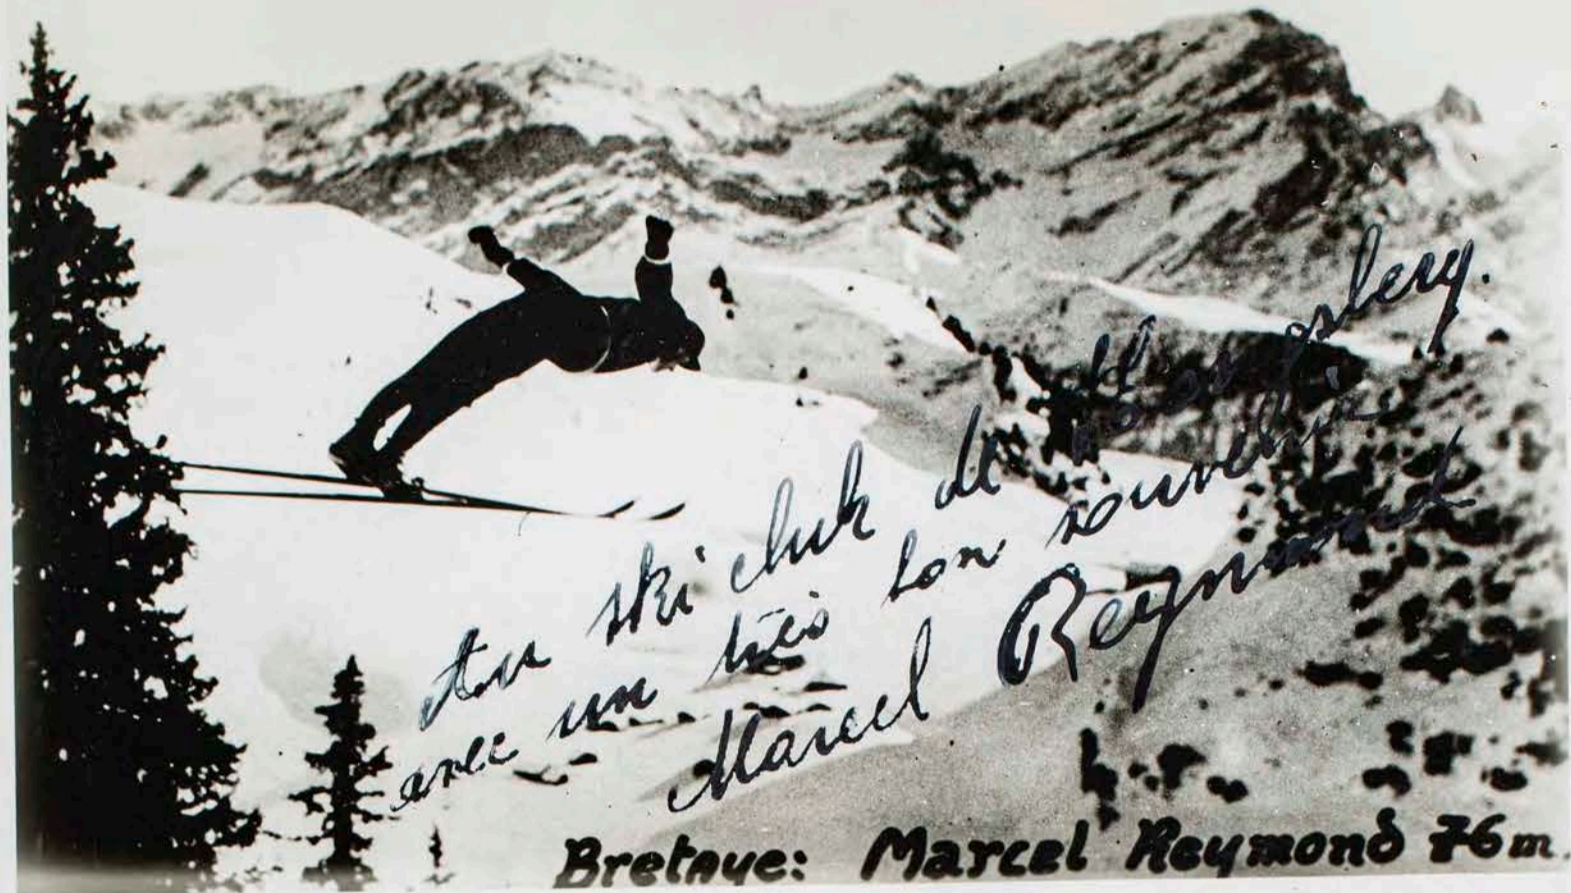 Au ski club de Kongsberg.
avec un très bon souvenir
Marcel Reymond
Bretaye: Marcel Reymond 76m.